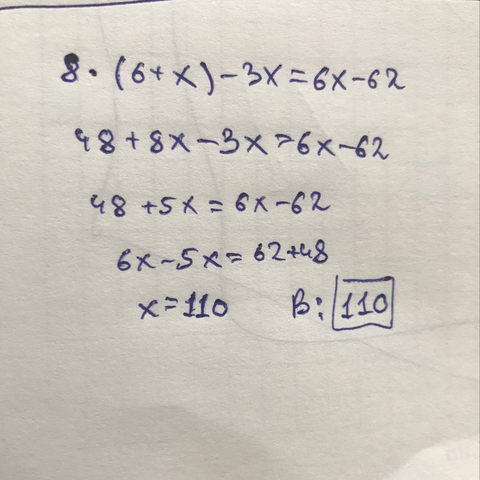 8·(6+x)-3x=6x-62
48+8x-3x=6x-62
48+5x=6x-62
6x-5x=62+48
x=110 B: 110